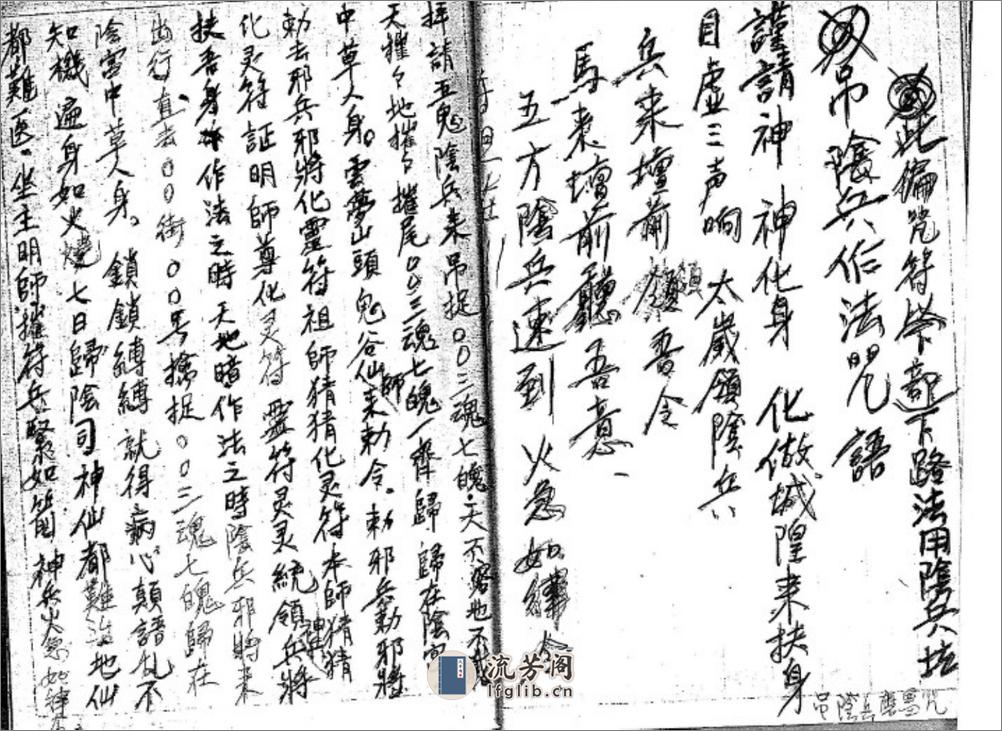 此編咒符条部下路法用陰兵坛
吊陰兵作法咒語
謹請神神化身 化做城隍来扶身
目虚三声响 太歲領陰兵
兵来壇前領吾令
馬来壇前聽吾意
五方陰兵速到 火急如律令
吊陰兵 咒
拜請五鬼陰兵来吊捉〇〇三魂七魄天不容地不
天摧々地摧々摧尾〇〇三魂七魄一齊歸歸在陰
中草人身雲夢山頭鬼谷仙师来勅令勅邪兵勅邪將
勅去邪兵邪將化靈符祖師猜猜化灵符本師猜猜
化灵符証明師尊化灵符靈符灵灵統領兵將
扶吾身作法之時天地暗作法之時陰兵邪將来
出行直去〇〇街〇〇号擒捉〇〇三魂七魄歸在
陰宫中草人身鎖鎖縛縛就得病心顛語乱不
知機遍身如火燒七日歸陰司神仙都難治地仙
都難医坐主明師摧符兵緊如箭神兵火急如律
流芳阁
lfglib.cn